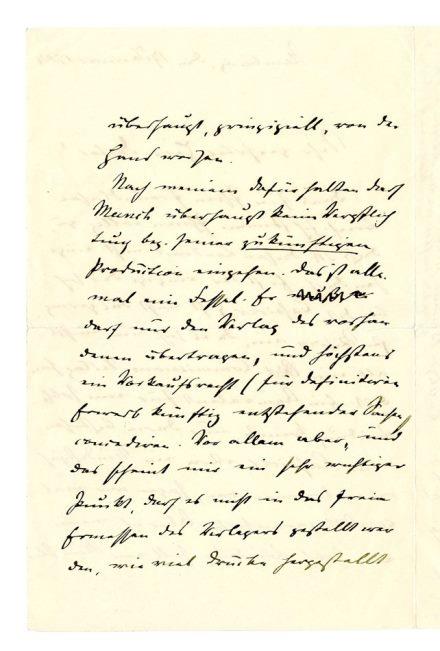 überhaupt, prinzipiell, von der
Hand weisen.
Nach meinem dafürhalten darf
Munch überhaupt keine Verpflich
tung bez. seiner zukünftigen
Production eingehen. Das ist alle
mal eine Fessel. Er
darf nur den Verlag des vorhan
denen übertragen, und höchstens
ein Vorkaufsrecht (für definitiven
Erwerb künftig entstehender Sachen)
concediren. Vor allem aber, und
das scheint mir ein sehr wichtiger
Punkt, darf es nicht in das freie
Ermessen des Verlegers gestellt wer
den, wie viel Drucke hergestellt